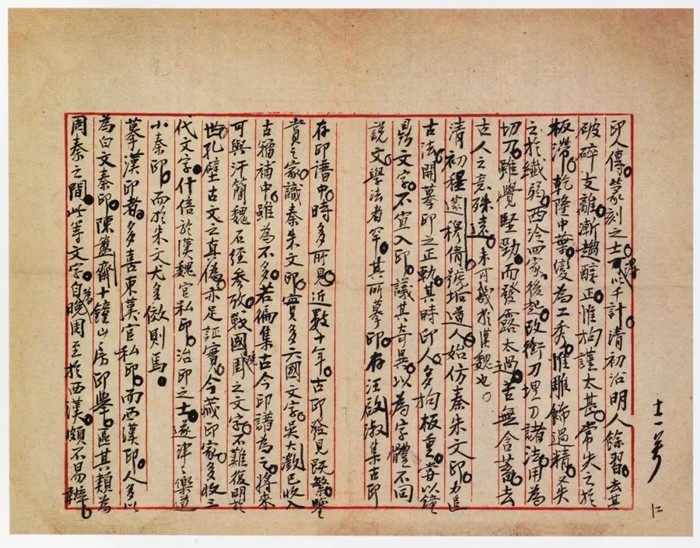 印人傳。篆刻之士。得以千計。清初沿明人餘習。去其
破碎支離。漸趨醇正。惟拘謹太甚。常失之於
板滯。乾隆中葉。變為工秀。惟雕飾過精。又失
之於纖弱。西泠四家後起。改衝刀埋刀諸法。用為
切刀。雖覺堅勁。而發露太過。苦無含蓄。去
古人之意殊遠。未可幾於漢魏也。
清初程邃穆倩垢道人始仿秦朱文印。力追
古法。開摹印之正軌。其時印人。多拘板重。毎以鐘
鼎文字。不宜入印。議其奇異。以為字體不同
說文。學法者罕。其所摹印。存汪啟淑集古印
存印譜中。時多所見。近數十年。古印發見既繁。鑒
賞之家。識秦朱文印。實多六國文字。吳澂已收入
古籀補中。雖為不多。若徧集古今印譜為之。將來
可與汗簡魏石經參攷。戰國之文字不難復明於
世。孔壁古文之真偽。亦足証實。今藏印家多收三
代文字。什倍於漢魏官私印。治印之士。遂津津樂道
小秦印。而於朱文尤多倣則焉。
摹漢印者。多喜東漢官私印。而西漢印。人多以
為白文秦印。陳簠齋十鐘山房印舉。區其類為
周秦之間。此等文字。自晚周至於西漢。頗不易辨。
十一号
仁